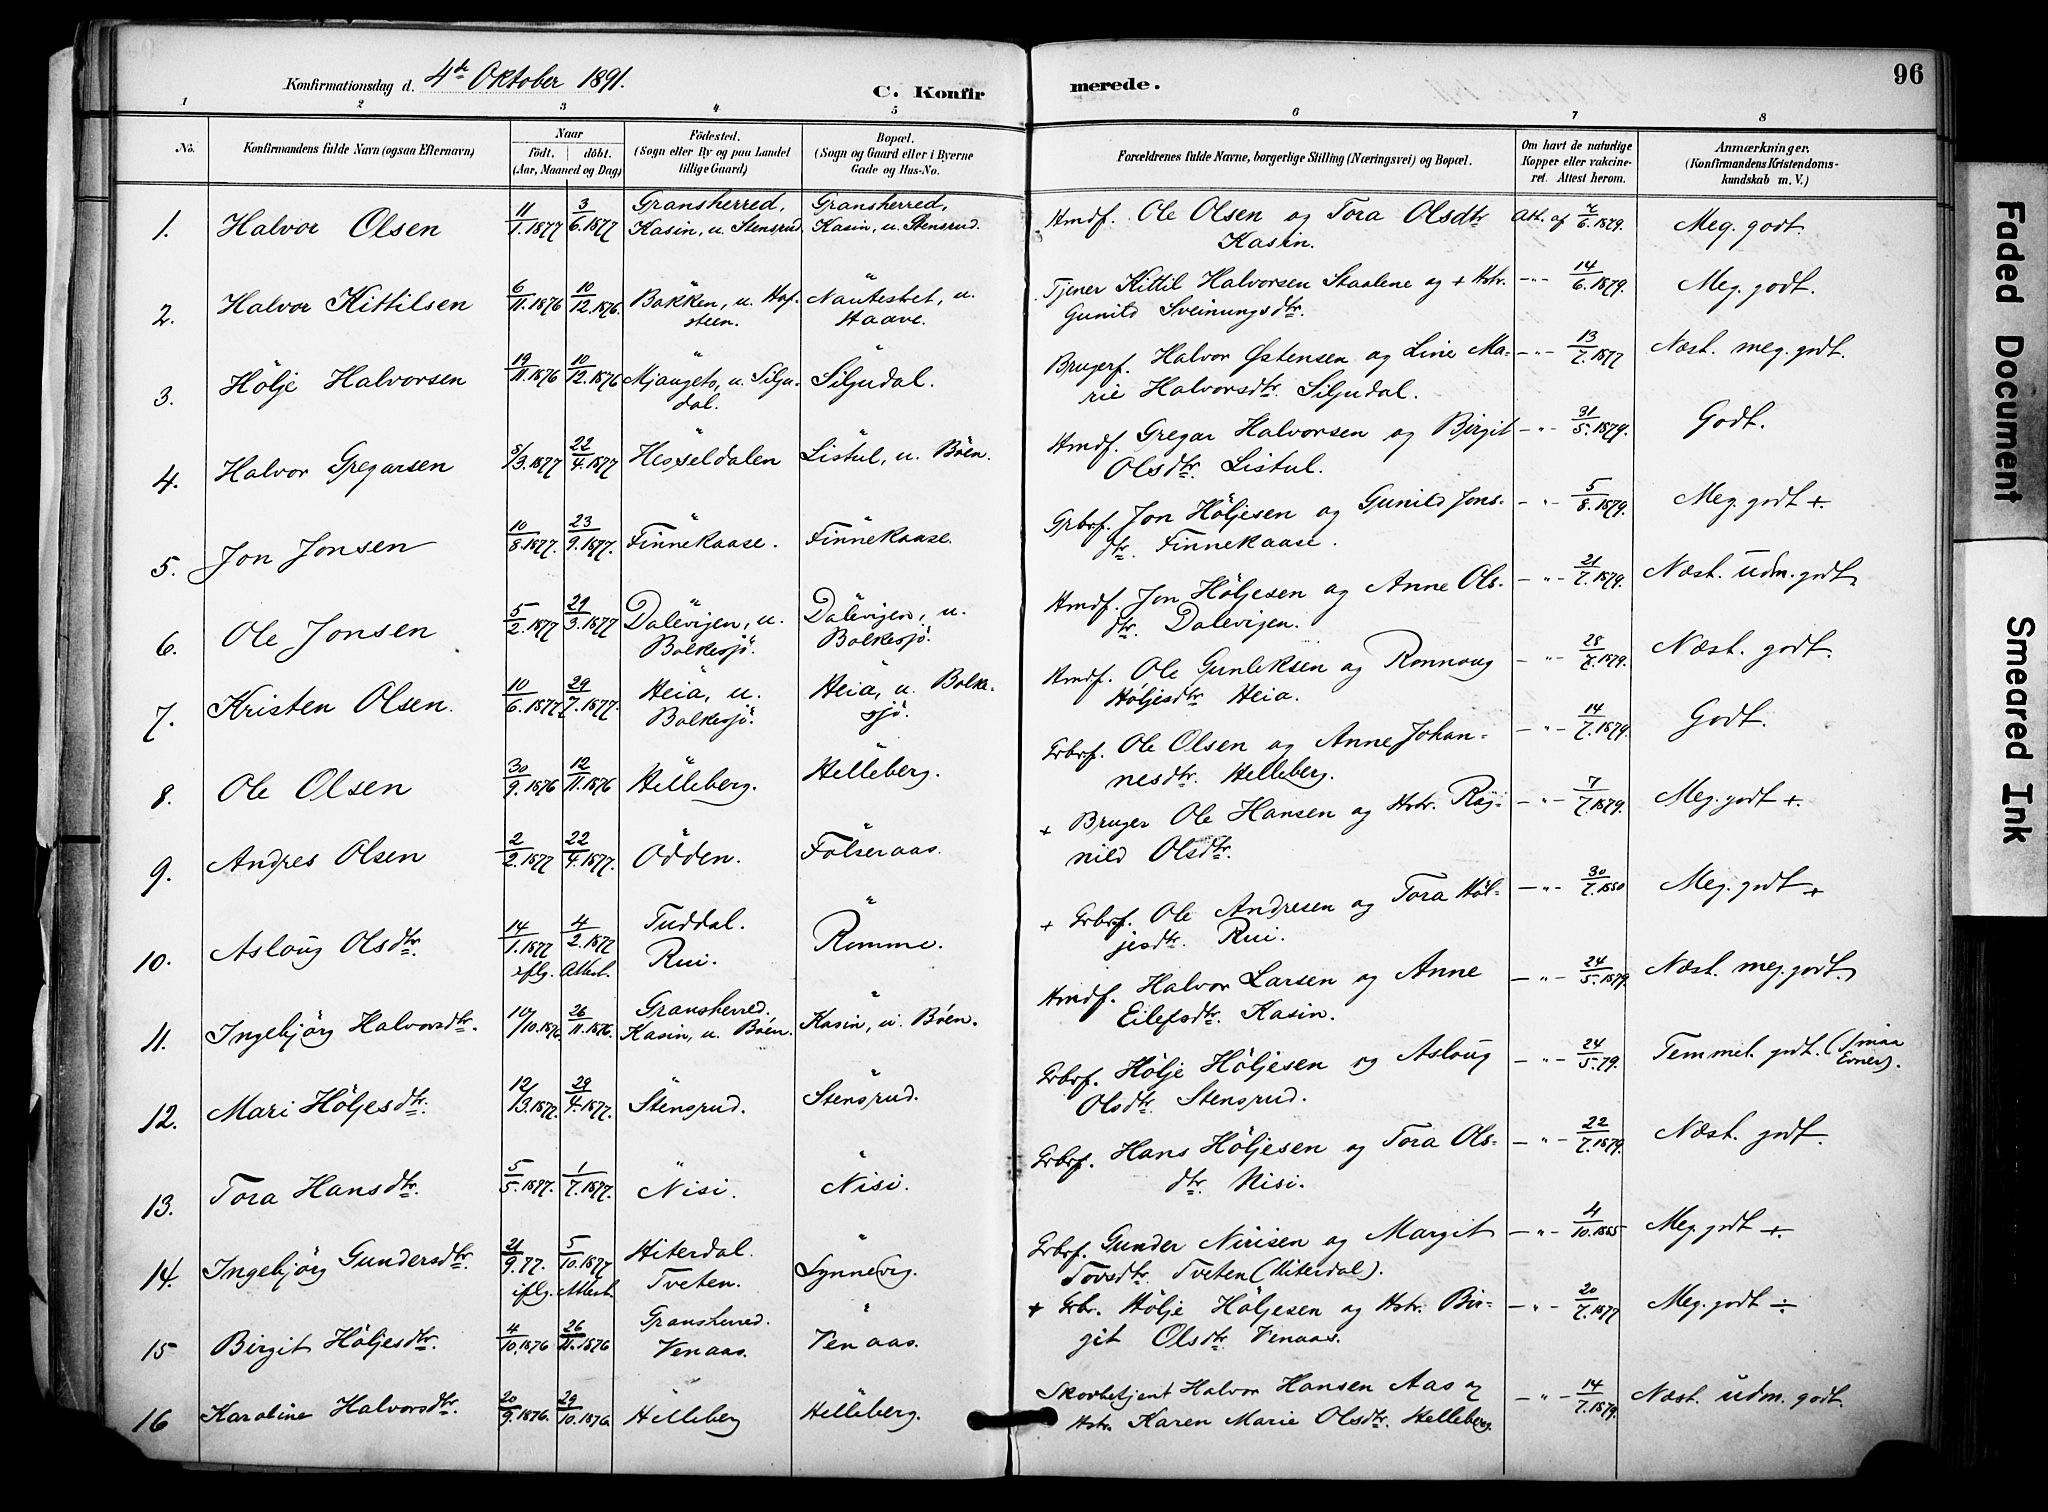 Konfirmationsdag d. 4de Oktober 1891.
C. Konfirmerede.
96
1 2 3 4 5 6 7 8
No.
Konfirmandens fulde Navn (ogsaa Efternavn)
Naar
födt. döbt.
(Aar, Maaned og Dag)
Födested.
(Sogn eller By og paa Landet
tillige Gaard)
Bopæl.
(Sogn og Gaard eller i Byerne
Gade og Hus-No.
Forældrenes fulde Navne, borgerlige Stilling (Næringsvei) og Bopæl.
Om havt de naturlige
Kopper eller vakcine-
ret. Attest herom.
Anmærkninger.
(Konfirmandens Kristendoms-
kundskab m. V.)
1. Halvor Olsen 11/1.1877 3/6.1877 Gransherred, Kasin, u. Stensrud Gransherred, Kasin, u. Stensrud. Hmdf. Ole Olsen og Tora Olsdtr Kasin. Att. af 2/6.1879. Meg. godt.
2. Halvor Kittilsen 6/11.1876 10/12.1876. Bakken, u. Hof- steen. " Nautestet, u. Haave. Tjener Kittil Halvorsen Staalene og + Hstr. Gunild Sveinungsdtr. -"- 14/6.1879. Meg. godt.
3. Hölje Halvorsen 19/11.1876 10/12.1876 " Mjaugets, u. Silju- dal. " Siljudal. Brugerf. Halvor Østensen og Line Ma- rie Halvorsdtr. Siljudal. -"- 13/7.1877 Næst. meg. godt.
4. Halvor Gregarsen 8/3.1877 22/4.1877 " Hesseldalen " Listul, u. Böen. Hmdf. Gregar Halvorsen og Birgit Olsdtr. Listul. -"- 31/5.1879. Godt.
5. Jon Jonsen 10/8.1877. 23/9.1877. " Finnekaase. " Finnekaase. Grbrf. Jon Höljesen og Gunild Jons- dtr. Finnekaase. -"- 5/8.1879. Meg. godt +.
6. Ole Jonsen 5/2.1877 29/3.1877 " Dalevijen, u. Bolkesjö. " Dalevijen, u. Bolkesjö. Hmdf. Jon Höljesen og Anne Ols- dtr. Dalevijen. -"- 21/7.1879. Næst. udm. godt.
7. Kristen Olsen. 10/6.1877 29/7.1877. " Heia, u. Bolkesjö. " Heia, u. Bolke- sjö. Hmdf. Ole Gunleksen og Ronnoug Höljesdtr Heia. -"- 28/7.1879. Næst. godt.
8. Ole Olsen 30/9.1876 12/11.1876 " Helleberg. " Helleberg. Grbrf. Ole Olsen og Anne Johan- nesdtr. Helleberg. -"- 14/7.1879. Godt.
9. Andres Olsen 2/2.1877 22/4.1877. " Odden. " Folseraas. + Bruger Ole Hansen og Hstr. Rag- nild Olsdtr. -"- 7/7.1879. Meg. godt +.
10. Asloug Olsdtr. 14/1.1877 iflg. 4/2.1877 Attest. Tuddal. Rui. " Romme. + Grbrf. Ole Andresen og Tora Höl- jesdtr. Rui. -"- 30/7.1880 Meg. godt +
11. Ingebjörg Halvorsdtr. 10/10.1876 26/11.1876. Gransherred. Kasin, u. Böen. " Kasin, u. Böen. Hmdf. Halvor Larsen og Anne Eilefsdtr. Kasin. -"- 24/5.1879. Næst. meg. godt.
12. Mari Höljesdtr. 12/3.1877. 29/4.1877. " Stensrud. " Stensrud. Grbrf. Hölje Höljesen og Asloug Olsdtr. Stensrud. -"- 24/5.79. Temmel. godt. (smaa Evner).
13. Tora Hansdtr. 5/5.1877. 1/7.1877. " Nisi. " Nisi. Grbrf. Hans Höljesen og Tora Ols- dtr. Nisi. -"- 22/7.1879. Næst. godt.
14. Ingebjörg Gundersdtr. 21/9.77. iflg. 5/10.1877 Attest. Hiterdal. Tveten. " Lynnevig. Grbrf. Gunder Nirisen og Margit Tovsdtr. Tveten (Hiterdal). -"- 4/10.1885 Meg. godt +.
15 Birgit Höljesdtr. 4/10.1876 26/11.1876 Gransherred. Venaas. " Venaas. + Grbr. Hölje Höljesen og Hstr. Bir- git Olsdtr. Venaas. -"- 20/7.1877 Meg. godt ÷
16 Karoline Halvorsdtr. 20/9.1876. 29/10.1876. " Helleberg " Helleberg. Skovbetjent Halvor Hansen Aas og Hstr. Karen Marie Olsdtr. Helleberg. -"- 14/7.1879. Næst. udm. godt.
Faded Document
Smeared Ink